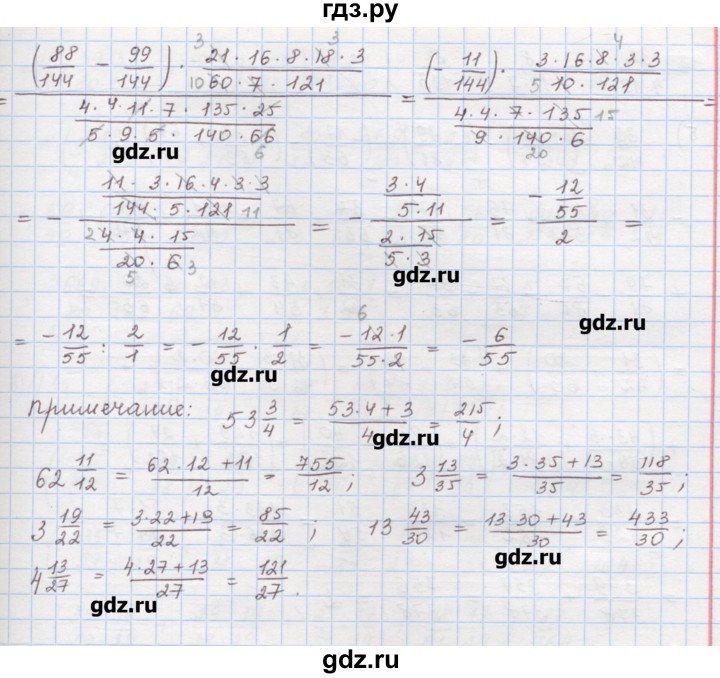 гдз.ру
= ((88/144 − 99/144) · (21 · 16 · 8 · 18 · 3)/(60 · 7 · 121)) / ((4 · 4 · 11 · 7 · 135 · 25)/(5 · 9 · 5 · 140 · 66)) = ((−11/144) · (3 · 16 · 8 · 3 · 3)/(10 · 121)) / ((4 · 4 · 7 · 135)/(9 · 140 · 6)) =
gdz.ru
= − ((11 · 3 · 16 · 4 · 3 · 3)/(144 · 5 · 121)) / ((4 · 4 · 15)/(20 · 6)) = − ((3 · 4)/(5 · 11)) / ((2 · 15)/(5 · 3)) = (− 12/55) / 2 =
gdz.ru
gdz.ru
= −12/55 : 2/1 = − 12/55 · 1/2 = (−12 · 1)/(55 · 2) = − 6/55
gdz.ru
примечание: 53 3/4 = (53 · 4 + 3)/4 = 215/4 ;
gdz.ru
62 11/12 = (62 · 12 + 11)/12 = 755/12 ; 3 13/35 = (3 · 35 + 13)/35 = 118/35 ;
3 19/22 = (3 · 22 + 19)/22 = 85/22 ; 13 43/30 = (13 · 30 + 43)/30 = 433/30 ;
4 13/27 = (4 · 27 + 13)/27 = 121/27 .
gdz.ru
gdz.ru
gdz.ru